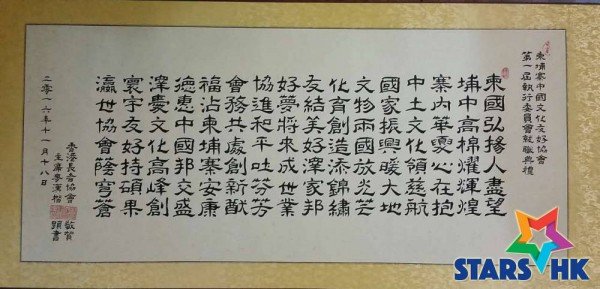 柬埔寨中國文化友好協會
第一屆執行委員會就職典禮
柬國弘揚人盡望
埔中高棉耀輝煌
寨內華裔心在抱
中土文化領慈航
國家振興暖大地
文物兩國放光芒
化育創造添錦繡
友結美好深家邦
好夢將來成世業
協進和平吐芬芳
會務共處創新猷
福沾柬埔寨安康
德惠中國邦交盛
深慶文化高峰創
寰宇友好持碩果
瀛世協會蔭穹蒼
香港長春協會 敬賀
主席李漢楷 題書
二零一六年十一月十八日
STARS HK